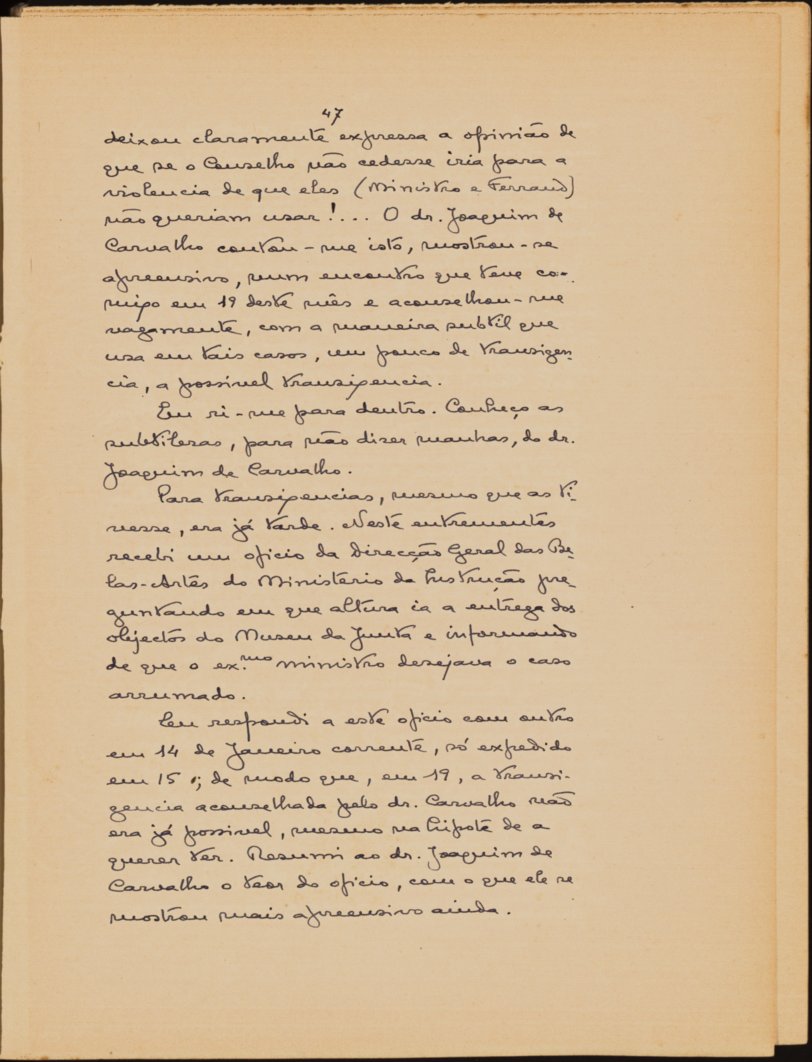 47
deixou claramente expressa a opinião de
que se o Conselho não cedesse iria para a
violencia de que eles (Ministro e Ferrand)
não queriam usar!... O dr. Joaquim de
Carvalho contou-me isto, mostrou-se
apreensivo, num encontro que teve co-
migo em 19 deste mês e aconselhou-me
vagamente, com a maneira subtil que
usa em tais casos, um pouco de transigen-
cia, a possível transigencia.
Eu ri-me para dentro. Conheço as
subtilezas, para não dizer manhas, do dr.
Joaquim de Carvalho.
Para transigencias, mesmo que as ti-
vesse, era já tarde. Neste entrementes
recebi um oficio da Direcção Geral das Be-
las-Artes do Ministerio da Instrução pre-
guntando em que altura ia a entrega dos
objectos do Museu da Junta e informando
de que o ex.mo ministro desejava o caso
arrumado.
Eu respondi a este oficio com outro
em 14 de Janeiro corrente, só expedido
em 15; de modo que, em 19, a transi-
gencia aconselhada pelo dr. Carvalho não
era já possivel, mesmo na hipote de a
querer ter. Resumi ao dr. Joaquim de
Carvalho o teor do oficio, com o que ele se
mostrou mais apreensivo ainda.